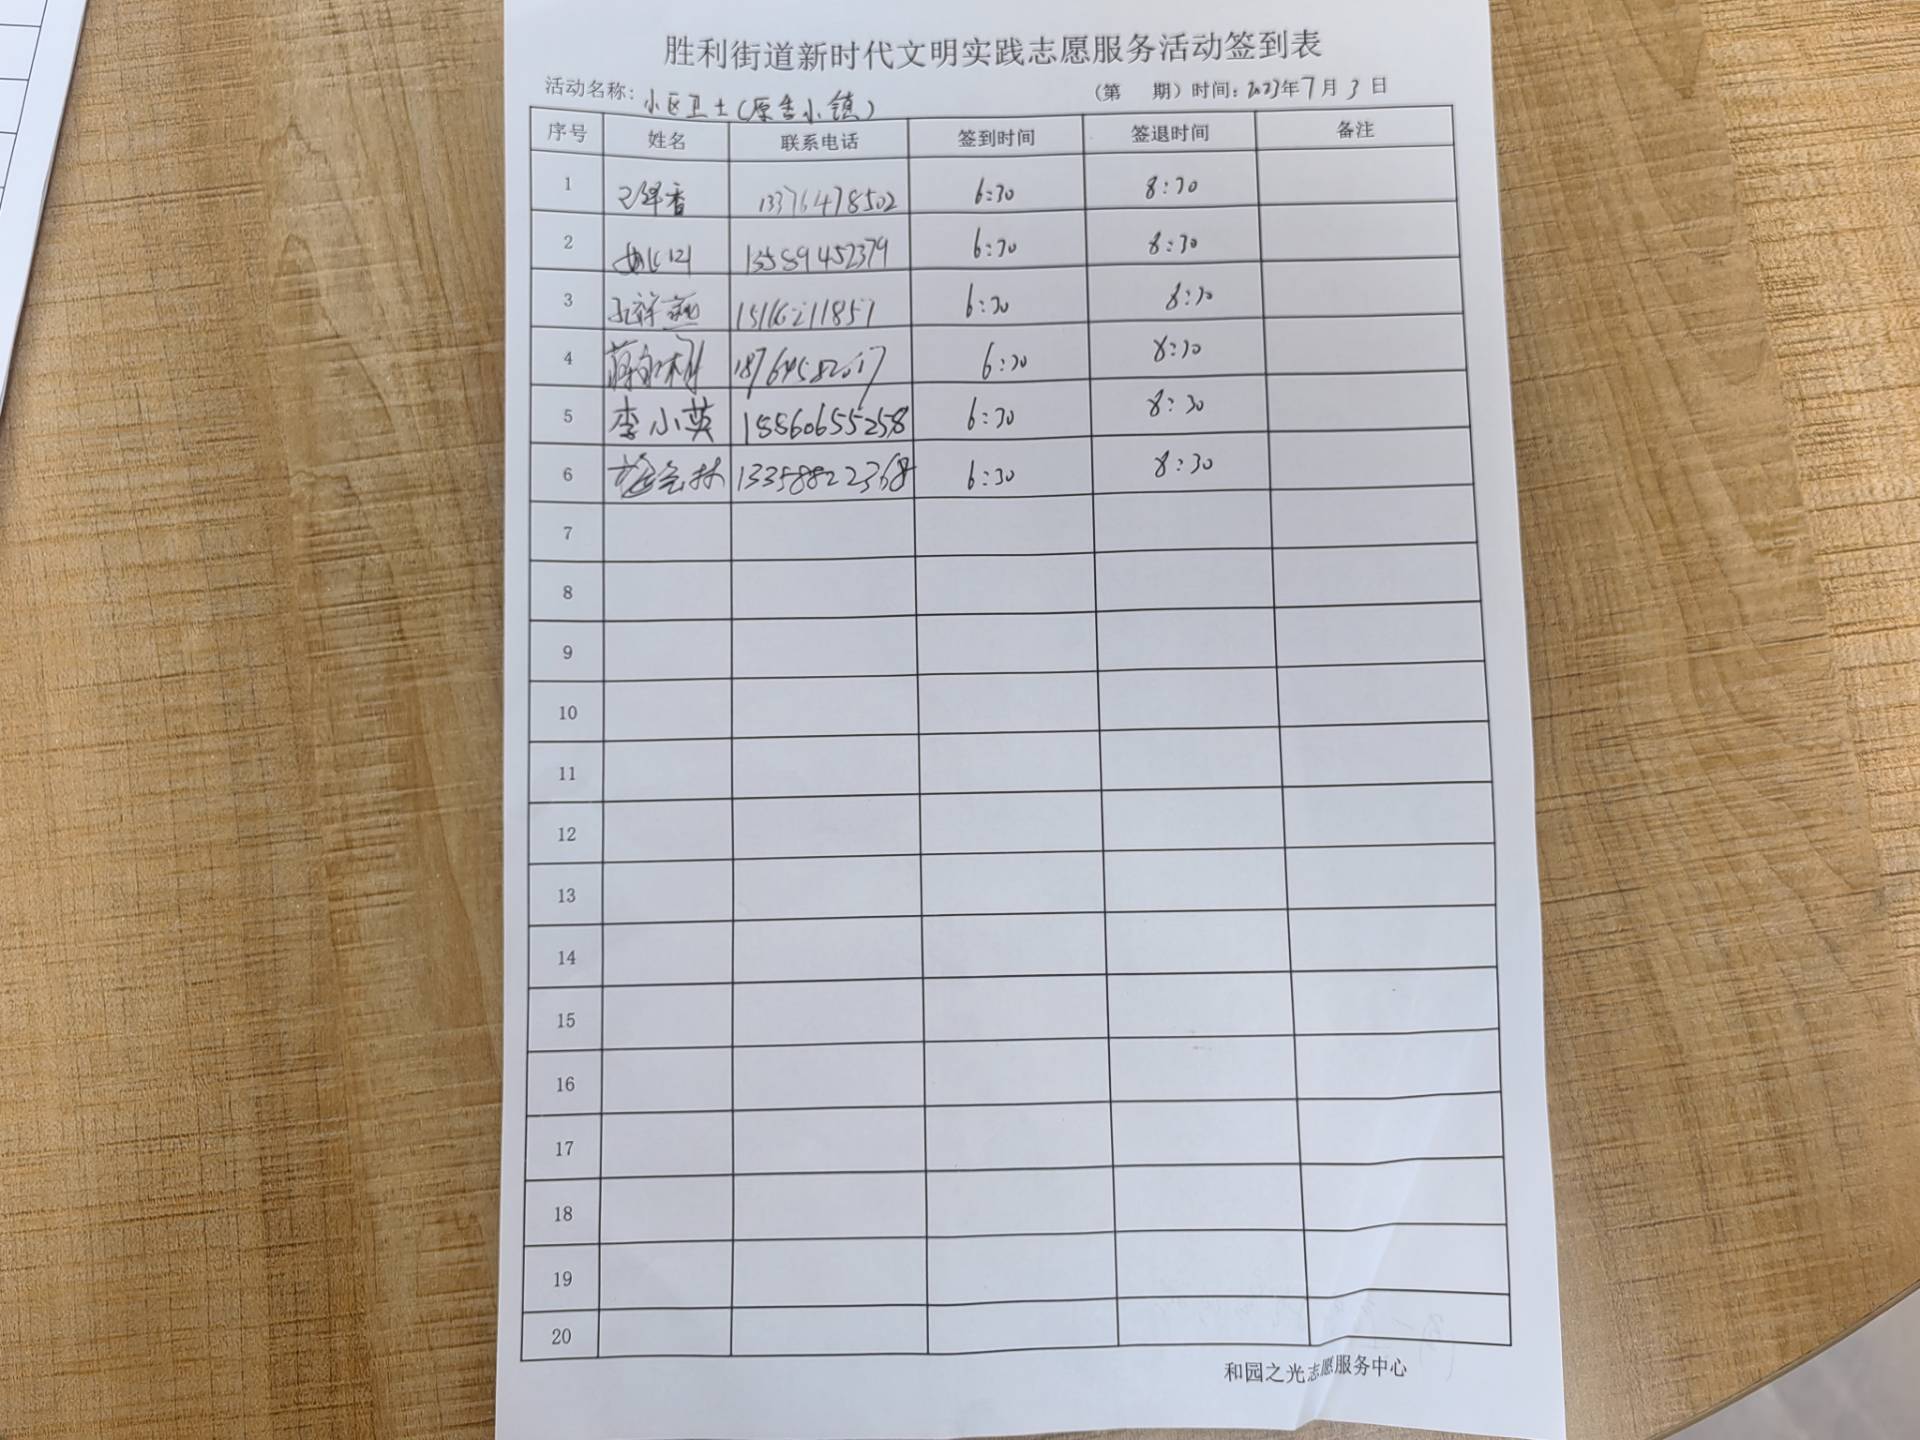 胜利街道新时代文明实践志愿服务活动签到表
活动名称: 小区卫士(原香小镇) (第 期) 时间: 2023年7月3日
序号 姓名 联系电话 签到时间 签退时间 备注
1 13376478502 6:30 8:30
2 13589452379 6:30 8:30
3 15166211857 6:30 8:30
4 6:30 8:30
5 李小英 15560655258 6:30 8:30
6 13358822368 6:30 8:30
7
8
9
10
11
12
13
14
15
16
17
18
19
20
和园之光志愿服务中心